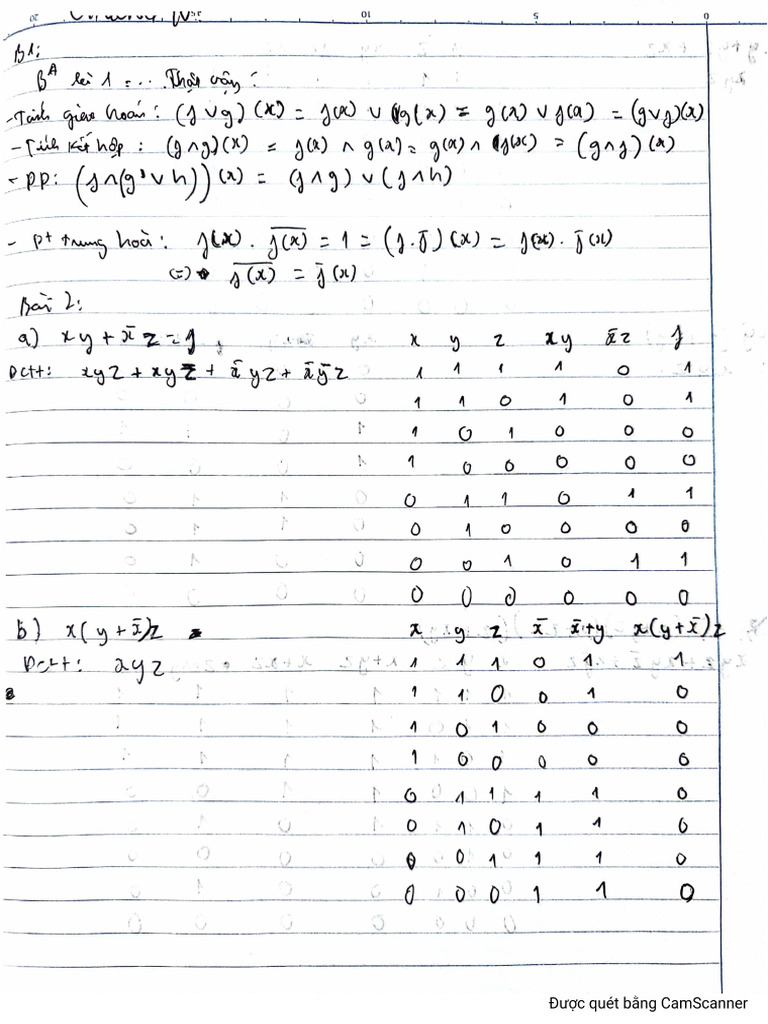 B1:
B^A là 1 = ... Thật vậy:
- Tính giao hoán: (f ∨ g)(x) = f(x) ∨ g(x) = g(x) ∨ f(x) = (g ∨ f)(x)
- Tính kết hợp: (f ∧ g)(x) = f(x) ∧ g(x) = g(x) ∧ f(x) = (g ∧ f)(x)
- PP: (f ∧ (g ∨ h))(x) = (f ∧ g) ∨ (f ∧ h)
- Pt trung hoà: f(x) . \overline{f(x)} = 1 = (f . f̄)(x) = f(x) . f̄(x)
(=) \overline{f(x)} = f̄(x)
Bài 2:
a) xy + x̄z = f
x y z xy x̄z f
Dctt: xyz + xyz̄ + x̄yz + x̄ȳz
1 1 1 1 0 1
1 1 0 1 0 1
1 0 1 0 0 0
1 0 0 0 0 0
0 1 1 0 1 1
0 1 0 0 0 0
0 0 1 0 1 1
0 0 0 0 0 0
b) x(y + x̄)z
x y z x̄ x̄+y x(y+x̄)z
Dctt: xyz
1 1 1 0 1 1
1 1 0 0 1 0
1 0 1 0 0 0
1 0 0 0 0 0
0 1 1 1 1 0
0 1 0 1 1 0
0 0 1 1 1 0
0 0 0 1 1 0
Được quét bằng CamScanner